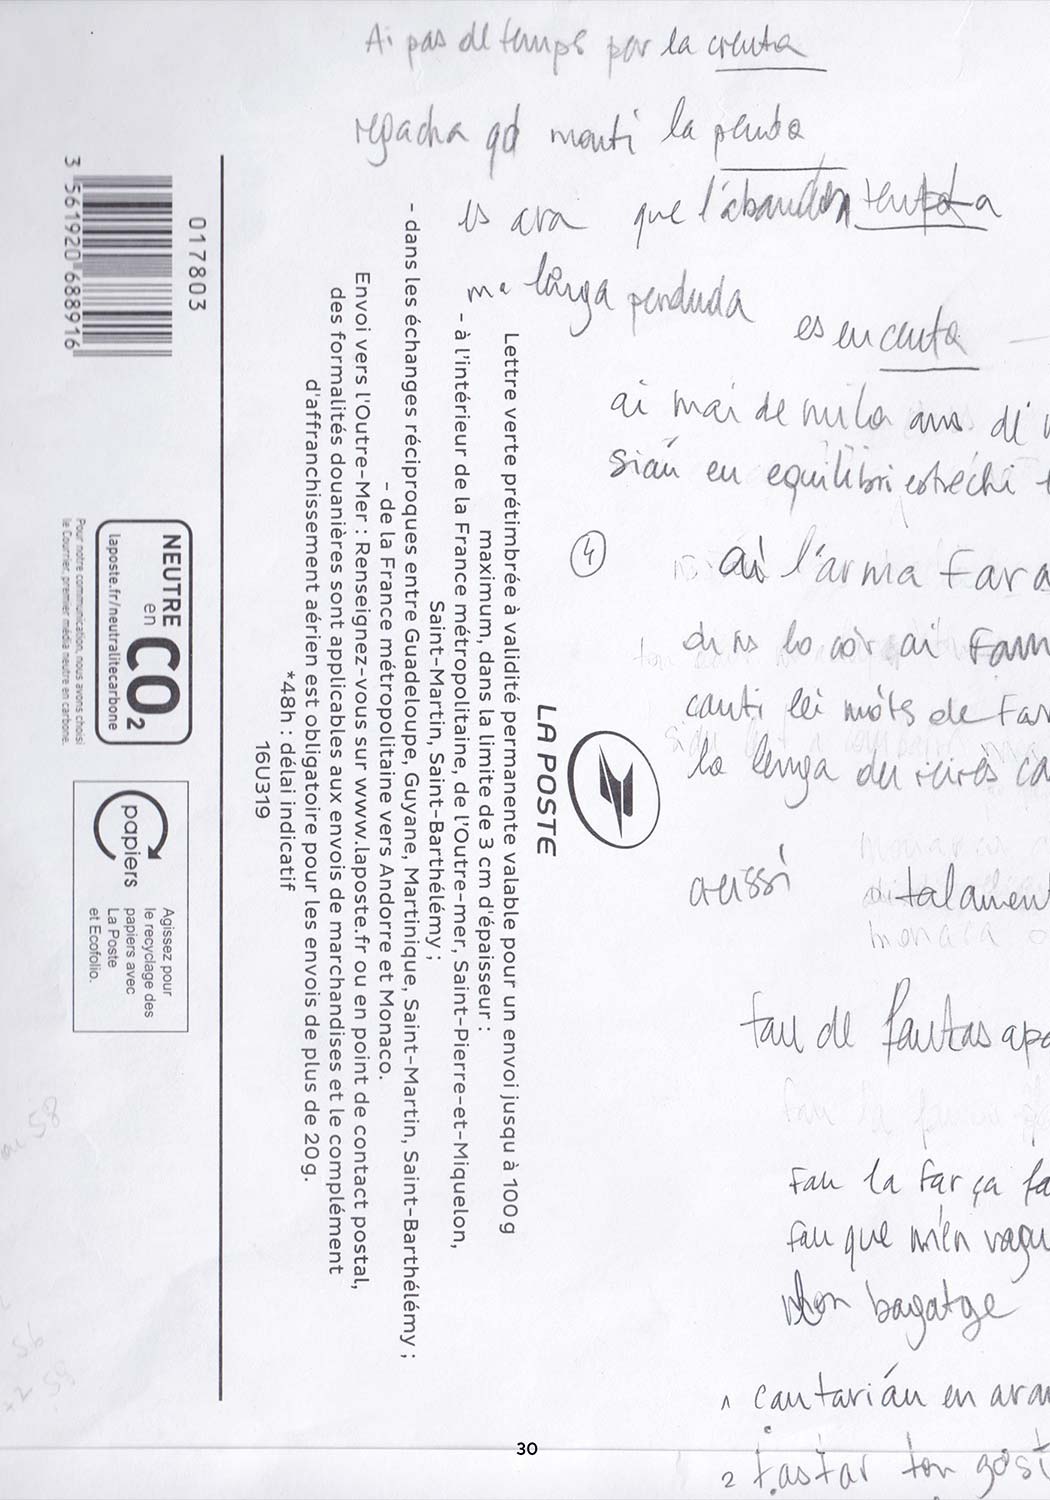 Ai pas de temps per la crenta
regacha qd monti la penta
es ara que l'abandon tenta
me larga penduda
es en centa
ai mai de mila ans de
siáu en equilibri estrechi
④
ai l'arma fara
dins lo còr ai fam
canti lei mòts de far
la lenga dei reires ca
aussi
talament
fau de fautas apr
fau la farça fa
fau que m'en vagu
mon bagatge
1 cantarián en aran
2 tastar ton gost
017803
3 561920 688916
LA POSTE
Lettre verte prétimbrée à validité permanente valable pour un envoi jusqu'à 100g
maximum, dans la limite de 3 cm d'épaisseur :
- à l'intérieur de la France métropolitaine, de l'Outre-mer, Saint-Pierre-et-Miquelon,
Saint-Martin, Saint-Barthélémy ;
- dans les échanges réciproques entre Guadeloupe, Guyane, Martinique, Saint-Martin, Saint-Barthélémy ;
- de la France métropolitaine vers Andorre et Monaco.
Envoi vers l'Outre-Mer : Renseignez-vous sur www.laposte.fr ou en point de contact postal,
des formalités douanières sont applicables aux envois de marchandises et le complément
d'affranchissement aérien est obligatoire pour les envois de plus de 20g.
*48h : délai indicatif
16U319
NEUTRE
en
CO2
laposte.fr/neutralitecarbone
Pour notre communication, nous avons choisi
le Courrier, premier média neutre en carbone.
papiers
Agissez pour
le recyclage des
papiers avec
La Poste
et Ecofolio.
30